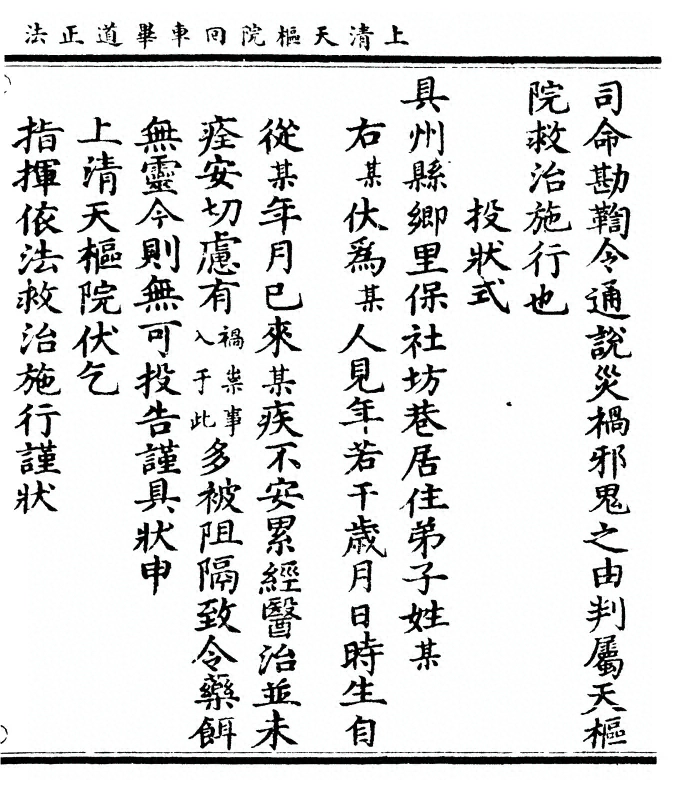 上清天樞院回車畢道正法
司命勘鞫令通說災禍邪鬼之由判屬天樞
院救治施行也
投狀式
具州縣鄉里保社坊巷居住弟子姓某
右某伏爲某人見年若干歲月日時生自
從某年月巳來某疾不安累經醫治並未
痊安切慮有禍祟事入于此多被阻隔致令藥餌
無靈今則無可投告謹具狀申
上清天樞院伏乞
指揮依法救治施行謹狀